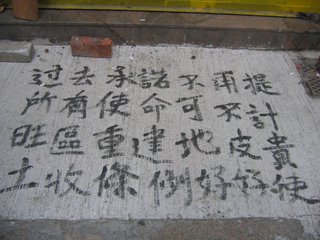 过去承諾不用提
所有使命可不計
旺區重建地皮貴
土收條例好好使